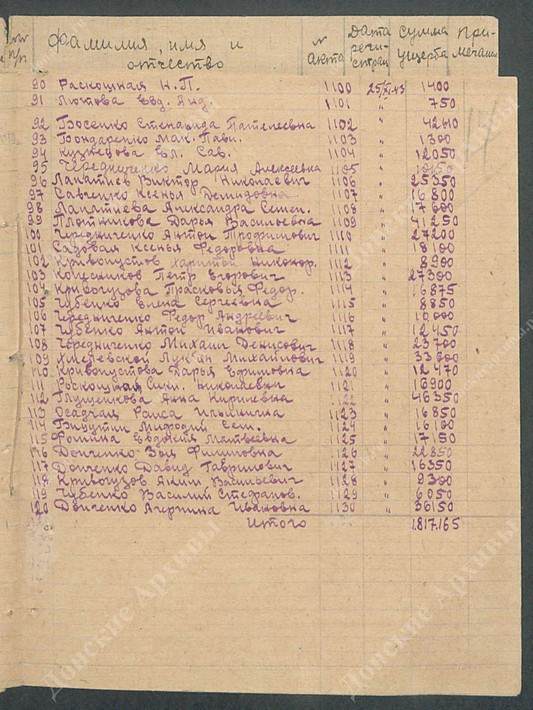 № п/п Фамилия, имя и отчество № акта Дата регистрации Сумма ущерба Примечание
90 Раскошная Н.П. 1100 25/XI-43 1400
91 Лютова Евд. Анд. 1101 " 750
92 Босенко Степанида Пателеевна 1102 "
93 Бондаренко Мак. Павл. 1103 " 1300
94 Кузнецова Ел. Сав. 1104 " 12050
95 Чередниченко Мария Алексеевна 1105 "
96 Лапатиев Виктор Николаевич 1106 " 25350
97 Савченко Ксенья Демидовна 1107 " 16800
98 Лапатиева Александра Семен. 1108 "
99 Плотникова Дарья Васильевна 1109 " 41250
100 Чередниченко Антон Трофимович 1110 " 27200
101 Садовая Ксенья Федоровна 1111 " 18100
102 Кривопустов Харитон Никонор. 1112 " 8900
103 Колесников Петр Егорович 1113 " 27300
104 Кривогузова Прасковья Федор. 1114 " 16875
105 Чубенко Елена Сергеевна 1115 " 8850
106 Чередниченко Федор Андреевич 1116 " 10000
107 Чубенко Антон Иванович 1117 " 12450
108 Чередниченко Михаил Денисович 1118 " 23700
109 Хмелевской Лукьян Михайлович 1119 "
110 Кривопустова Дарья Ефимовна 1120 " 12470
111 Роскошная Николаевна 1121 " 16900
112 Глущенкова Анна Кирилевна 1122 " 48350
113 Осадчая Раиса Ильинична 1123 " 16850
114 Сем. 1124 " 16100
115 Фомина Евдокия Матвеевна 1125 " 17150
116 Донченко Зоя Филиповна 1126 " 22850
117 Донченко Давид Гаврилович 1127 " 16350
118 Кривогузов Аким Васильевич 1128 " 9300
119 Чубенко Василий Стефанов. 1129 " 6050
120 Донченко Ивановна 1130 " 36150
Итого 1.817.165
Донские Архивы